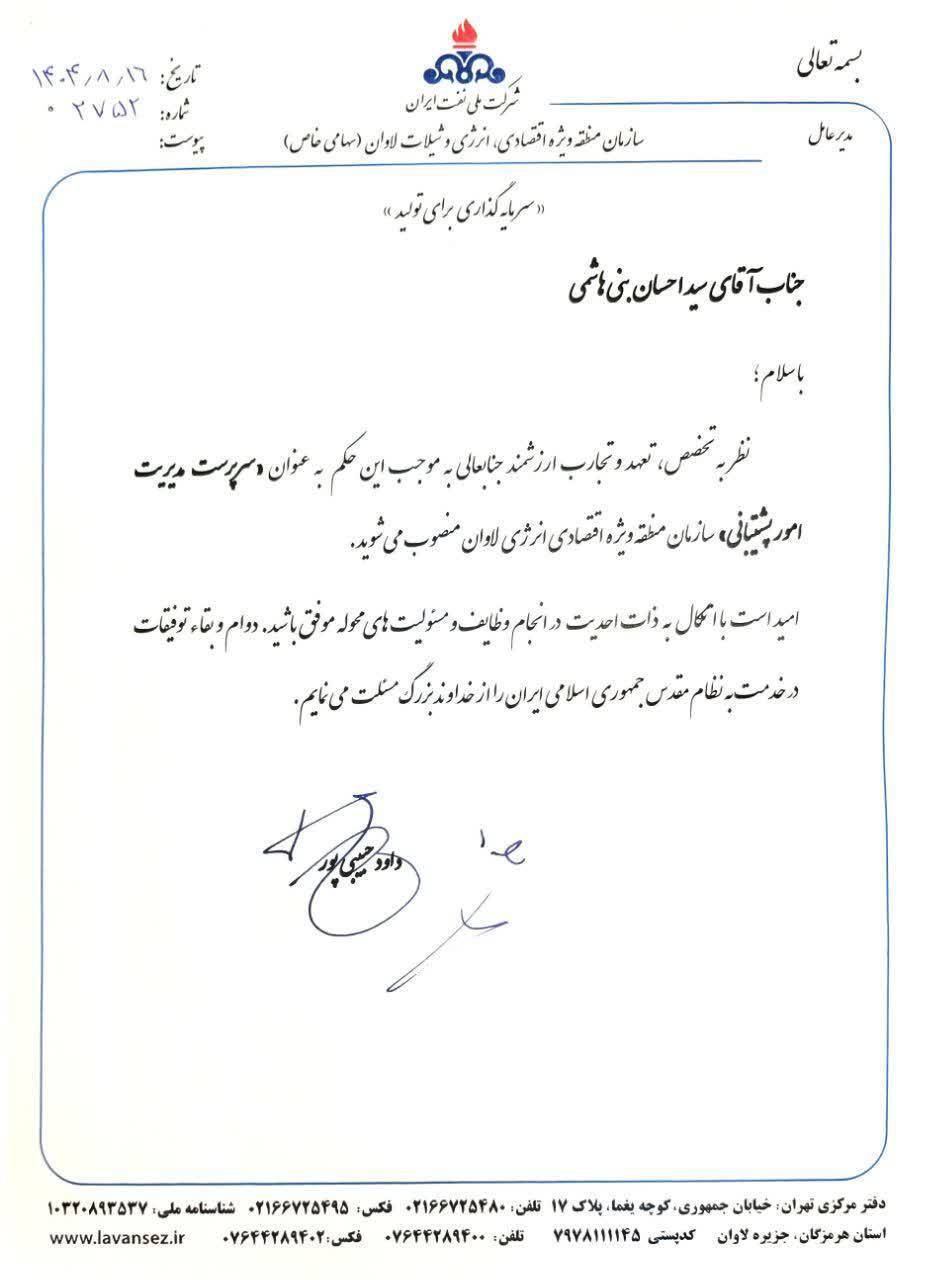 بسمه تعالی
شرکت ملی نفت ایران
تاریخ: ۱۴۰۴/۸/۱۶
شماره: ۰۲۷۵۲
پیوست:
مدیرعامل
سازمان منطقه ویژه اقتصادی، انرژی و شیلات لاوان (سهامی خاص)
«سرمایه گذاری برای تولید»
جناب آقای سید احسان بنی هاشمی
با سلام؛
نظر به تخصص، تعهد و تجارب ارزشمند جنابعالی به موجب این حکم به عنوان «سرپرست مدیریت
امور پشتیبانی» سازمان منطقه ویژه اقتصادی انرژی لاوان منصوب می شوید.
امید است با اتکال به ذات احدیت در انجام وظایف و مسئولیت های محوله موفق باشید. دوام و بقاء توفیقات
در خدمت به نظام مقدس جمهوری اسلامی ایران را از خداوند بزرگ مسئلت می نمایم.
داود حبیبی پور
دفتر مرکزی تهران: خیابان جمهوری، کوچه یغما، پلاک ۱۷ تلفن: ۰۲۱۶۶۷۲۵۴۸۰ فکس: ۰۲۱۶۶۷۲۵۴۹۵ شناسنامه ملی: ۱۰۳۲۰۸۹۳۵۳۷
استان هرمزگان، جزیره لاوان کدپستی ۷۹۷۸۱۱۱۱۴۵ تلفن: ۰۷۶۴۴۲۸۹۴۰۰ فکس: ۰۷۶۴۴۲۸۹۴۰۲ www.lavansez.ir